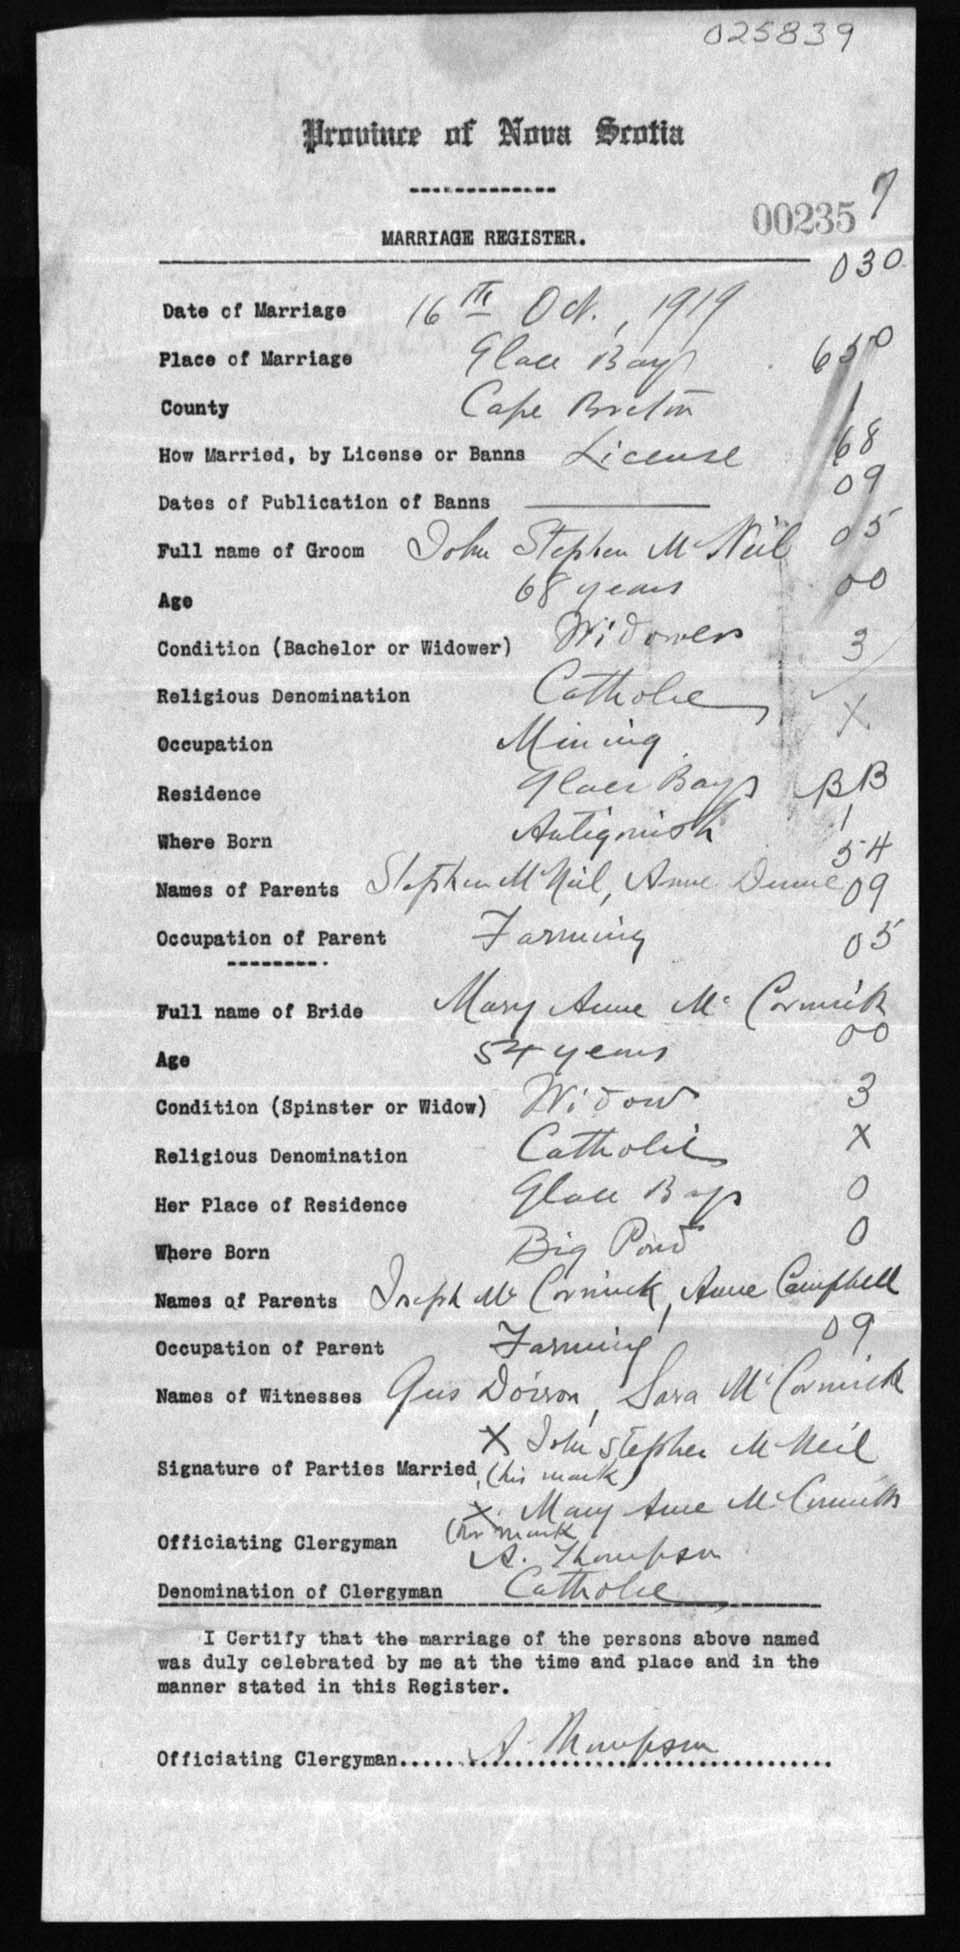 025839
Province of Nova Scotia
00235 7
MARRIAGE REGISTER.
030
Date of Marriage 16th Oct., 1919
Place of Marriage Glace Bay 650
County Cape Breton 1
How Married, by License or Banns License 68
Dates of Publication of Banns 09
Full name of Groom John Stephen McNeil 05
Age 68 years 00
Condition (Bachelor or Widower) Widower 3
Religious Denomination Catholic X
Occupation Mining
Residence Glace Bay BB
Where Born Antigonish 1
54
Names of Parents Stephen McNeil, Anne 09
Occupation of Parent Farming 05
Full name of Bride Mary Anne McCormick
Age 54 years 00
Condition (Spinster or Widow) Widow 3
Religious Denomination Catholic X
Her Place of Residence Glace Bay 0
Where Born Big Pond 0
Names of Parents Joseph McCormick, Anne Campbell
Occupation of Parent Farming 09
Names of Witnesses Gus Doirron, Sara McCormick
X John Stephen McNeil
Signature of Parties Married (his mark)
X Mary Anne McCormick
(her mark
Officiating Clergyman A. Thompson
Denomination of Clergyman Catholic
I Certify that the marriage of the persons above named
was duly celebrated by me at the time and place and in the
manner stated in this Register.
Officiating Clergyman A. Thompson